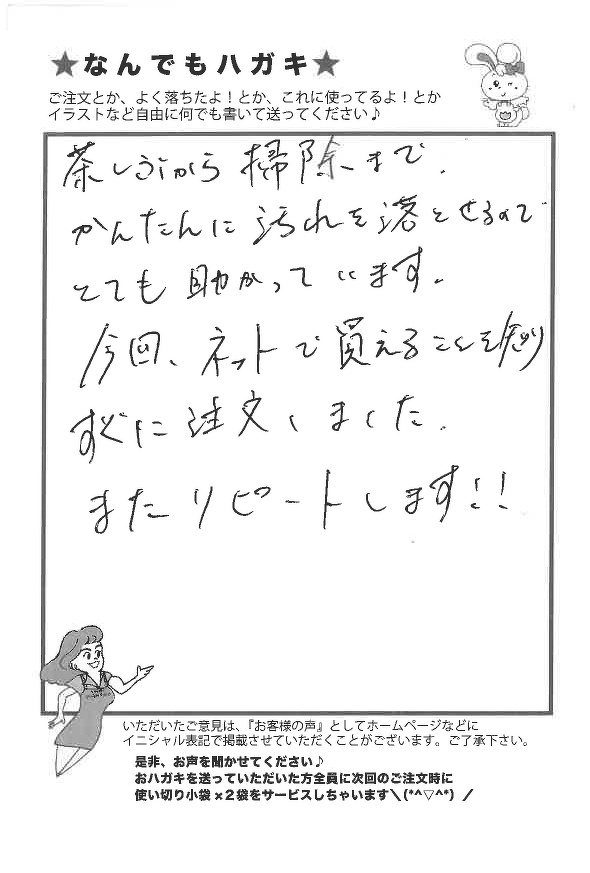 ★なんでもハガキ★
ご注文とか、よく落ちたよ！とか、これに使ってるよ！とか
イラストなど自由に何でも書いて送ってください♪
茶しぶから掃除まで、
かんたんに汚れを落とせるので
とても助かっています。
今回、ネットで買えることを知り
すぐに注文しました。
またリピートします!!
いただいたご意見は、『お客様の声』としてホームページなどに
イニシャル表記で掲載させていただくことがございます。ご了承下さい。
是非、お声を聞かせてください♪
おハガキを送っていただいた方全員に次回のご注文時に
使い切り小袋×2袋をサービスしちゃいます＼(*^▽^*)／